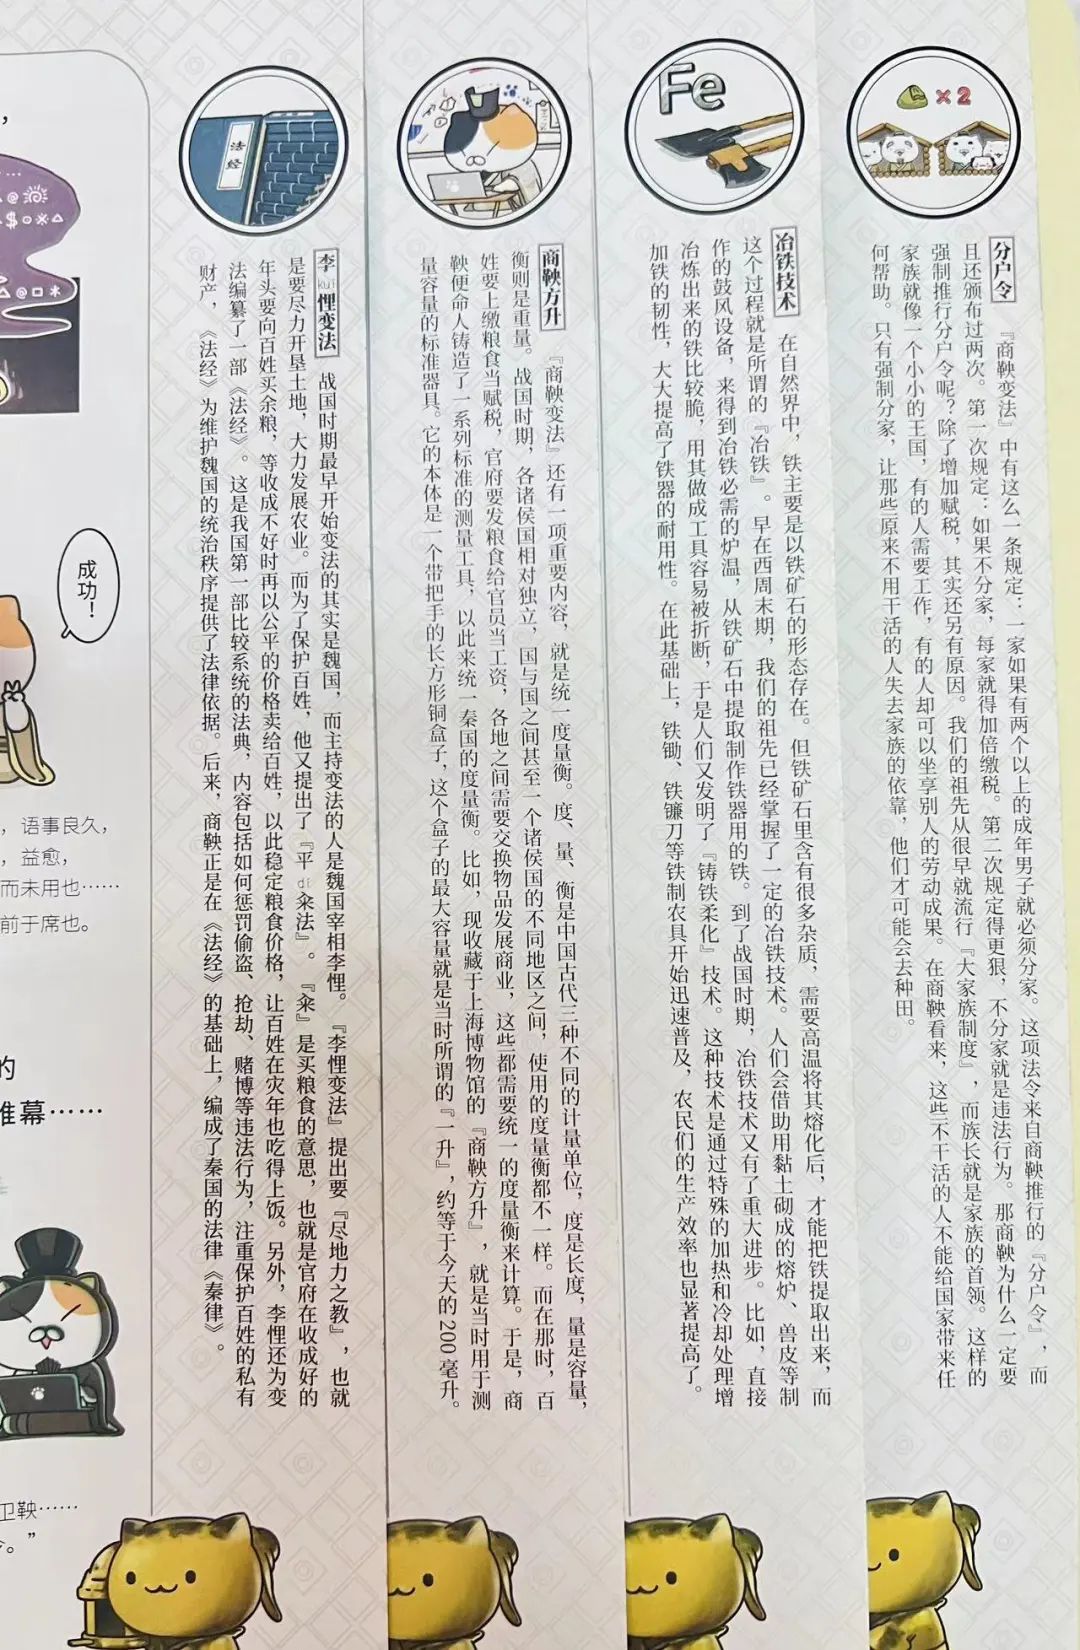 × 2
分户令 『商鞅变法』中有这么一条规定：一家如果有两个以上的成年男子就必须分家。这项法令来自商鞅推行的『分户令』，而
且还颁布过两次。第一次规定：如果不分家，每家就得加倍缴税。第二次规定得更狠，不分家就是违法行为。那商鞅为什么一定要
强制推行分户令呢？除了增加赋税，其实还另有原因。我们的祖先从很早就流行『大家族制度』，而族长就是家族的首领。这样的
家族就像一个小小的王国，有的人需要工作，有的人却可以坐享别人的劳动成果。在商鞅看来，这些不干活的人不能给国家带来任
何帮助。只有强制分家，让那些原来不用干活的人失去家族的依靠，他们才可能会去种田。
Fe
冶铁技术 在自然界中，铁主要是以铁矿石的形态存在。但铁矿石里含有很多杂质，需要高温将其熔化后，才能把铁提取出来，而
这个过程就是所谓的『冶铁』。早在西周末期，我们的祖先已经掌握了一定的冶铁技术。人们会借助用黏土砌成的熔炉、兽皮等制
作的鼓风设备，来得到冶铁必需的炉温，从铁矿石中提取制作铁器用的铁。到了战国时期，冶铁技术又有了重大进步。比如，直接
冶炼出来的铁比较脆，用其做成工具容易被折断，于是人们又发明了『铸铁柔化』技术。这种技术是通过特殊的加热和冷却处理增
加铁的韧性，大大提高了铁器的耐用性。在此基础上，铁锄、铁镰刀等铁制农具开始迅速普及，农民们的生产效率也显著提高了。
商鞅方升 『商鞅变法』还有一项重要内容，就是统一度量衡。度、量、衡是中国古代三种不同的计量单位，度是长度，量是容量，
衡则是重量。战国时期，各诸侯国相对独立，国与国之间甚至一个诸侯国的不同地区之间，使用的度量衡都不一样。而在那时，百
姓要上缴粮食当赋税，官府要发粮食给官员当工资，各地之间需要交换物品发展商业，这些都需要统一的度量衡来计算。于是，商
鞅便命人铸造了一系列标准的测量工具，以此来统一秦国的度量衡。比如，现收藏于上海博物馆的『商鞅方升』，就是当时用于测
量容量的标准器具。它的本体是一个带把手的长方形铜盒子，这个盒子的最大容量就是当时所谓的『一升』，约等于今天的200毫升。
法经
李悝kuī变法 战国时期最早开始变法的其实是魏国，而主持变法的人是魏国宰相李悝。『李悝变法』提出要『尽地力之教』，也就
是要尽力开垦土地，大力发展农业。而为了保护百姓，他又提出了『平籴dí法』。『籴』是买粮食的意思，也就是官府在收成好的
年头要向百姓买余粮，等收成不好时再以公平的价格卖给百姓，以此稳定粮食价格，让百姓在灾年也吃得上饭。另外，李悝还为变
法编纂了一部《法经》。这是我国第一部比较系统的法典，内容包括如何惩罚偷盗、抢劫、赌博等违法行为，注重保护百姓的私有
财产，《法经》为维护魏国的统治秩序提供了法律依据。后来，商鞅正是在《法经》的基础上，编成了秦国的法律《秦律》。
成功！
，语事良久，
，益愈，
而未用也……
前于席也。
的
帷幕……
卫鞅……
。”